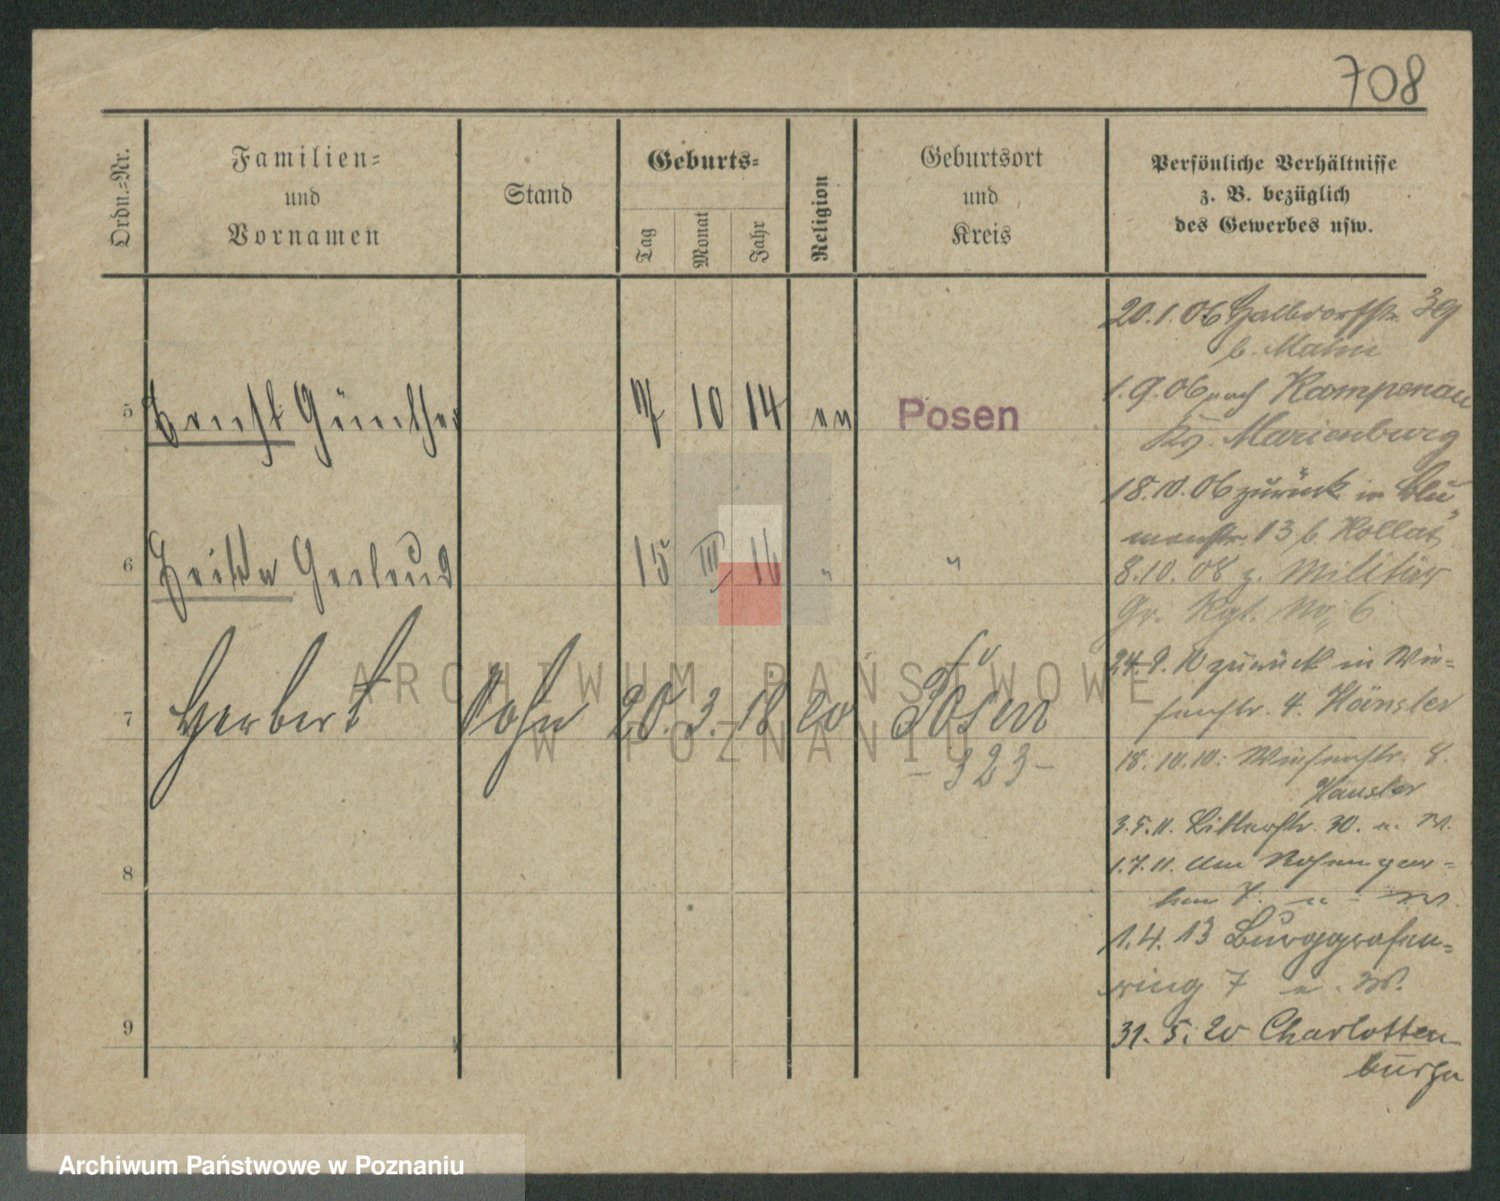 708
Ordn.-Nr.
Familien-
und
Vornamen
Stand
Geburts-
Tag
Monat
Jahr
Religion
Geburtsort
und
Kreis
Persönliche Verhältnisse
z. B. bezüglich
des Gewerbes usw.
5 Ernst Günther 7 10 14 ev Posen
6 Gertrud 15 III 16 " "
7 Herbert Sohn 20. 3. 18 ev Posen
- 323 -
8
9
20.1.06 Halbdorfstr. 39
b. Mann
1.9.06 nach Kampenau
Kr. Marienburg
18.10.06 zurück in Blu-
menstr. 13 b. Kollat
8.10.08 z. Militär
Gr. Rgt. No. 6
24.9.10 zurück in Wie-
senstr. 4. Hänsler
18.10.10. Wiesenstr. 8.
Hänsler
3.5.11. Ritterstr. 30. u. W.
1.7.11. Am Rosengar-
ten 7. u. W.
1.4.13 Burggrafen-
ring 7 u. W.
31.5.20 Charlotten
burg
ARCHIWUM PAŃSTWOWE
W POZNANIU
Archiwum Państwowe w Poznaniu